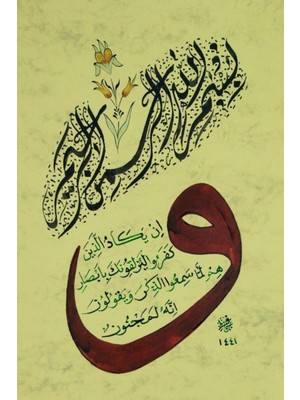 بسم الله الرحمن الرحيم
و
ان يكاد الذين
كفروا ليزلقونك بابصار
هم لما سمعوا الذكر ويقولون
انه لمجنون
١٤٤١